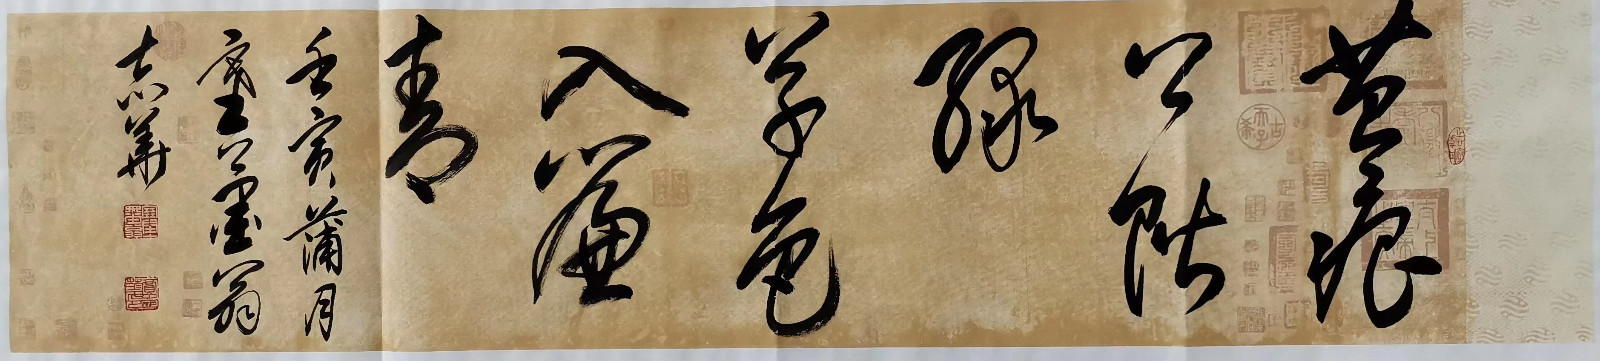 苔痕
上階
綠
草色
入簾
青
壬寅蒲月
塞上墨翁
志華